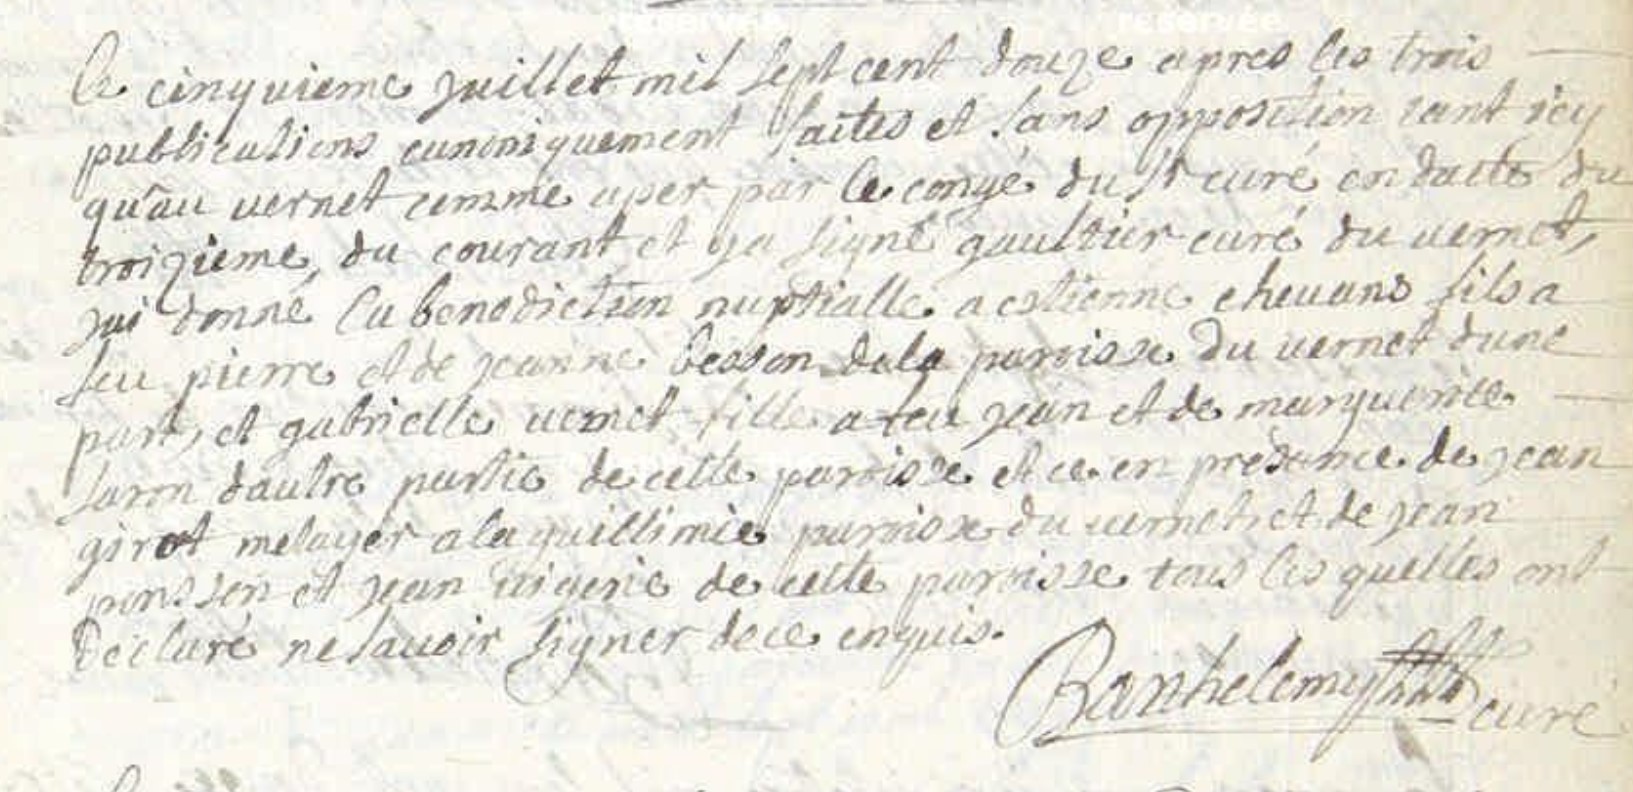 réservée
Le cinquieme juillet mil sept cent douze apres les trois
publications canoniquement faites et sans opposition tant icy
qu'au vernet comme aper par le congé du Sr curé en datte du
troizieme, du courant et ya signé gaultier curé du vernet,
jai donné la benediction nuptialle a estienne chevans fils a
feu pierre et de jeanne besson de la paroisse du vernet dune
part, et gabrielle vernet fille a feu jean et de marguerite
saron dautre partie de cette paroisse et ce en presance de jean
girot metayer a la guillimie paroisse du vernet et de jean
ponsson et jean de cette paroisse tous les quelles ont
declaré ne savoir signer de ce enquis.
Barthelemy curé